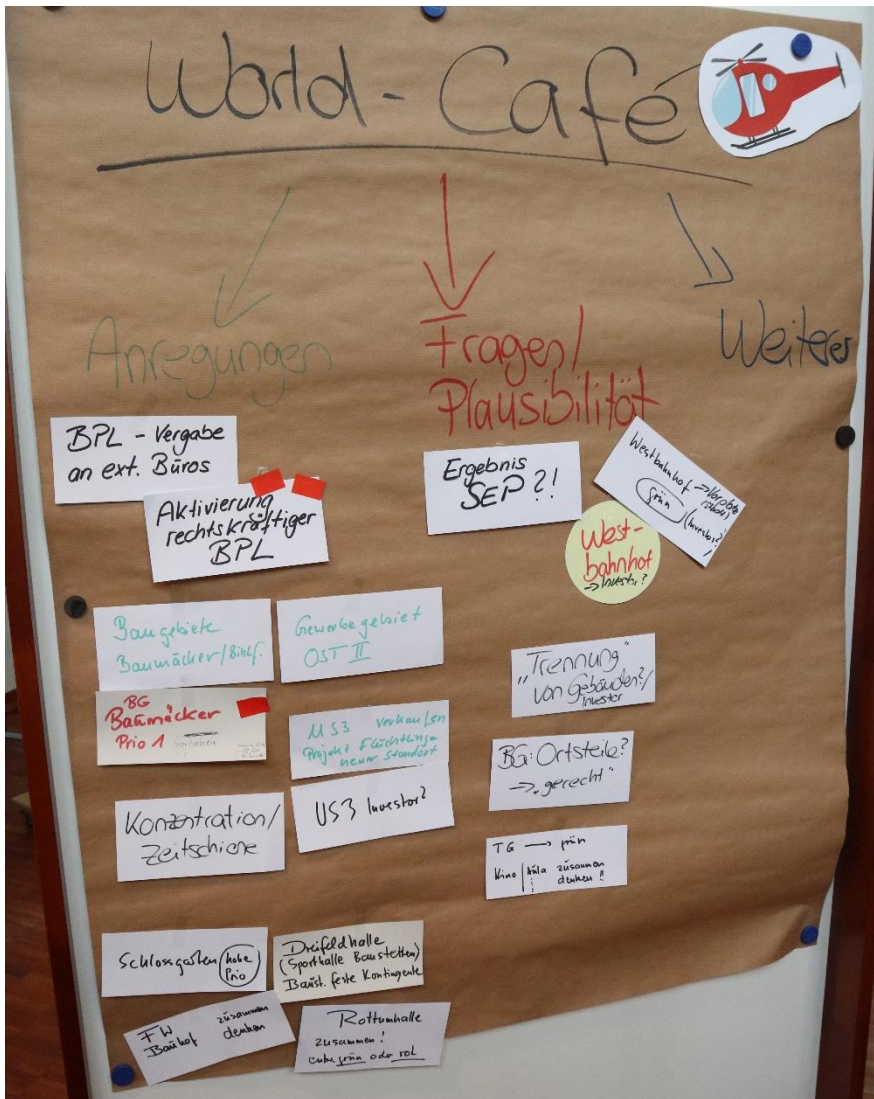 World-Café
Anregungen
Fragen/
Plausibilität
Weiteres
BPL - Vergabe
an ext. Büros
Aktivierung
rechtskräftiger
BPL
Baugebiete
Baumäcker/Bihlf.
Gewerbegebiet
OST II
BG
Baumäcker
Prio 1
MS3 verkaufen
Projekt Flüchtlinge
neuer Standort
Konzentration/
Zeitschiene
US3 Investor?
Schlossgarten hohe
Prio
Dreifeldhalle
(Sporthalle Baustetten)
Baust. feste Kontingente
FW zusammen
Bauhof denken
Rottumhalle
zusammen!
grün oder rot
Ergebnis
SEP?!
Westbahnhof → Vorplatz
grün (Investor?)
West-
bahnhof
→ Investor?
„Trennung"
von Gebäuden?/
Investor
BG: Ortsteile?
→ „gerecht"
TG → grün
Kino / Aula zusammen
denken!!